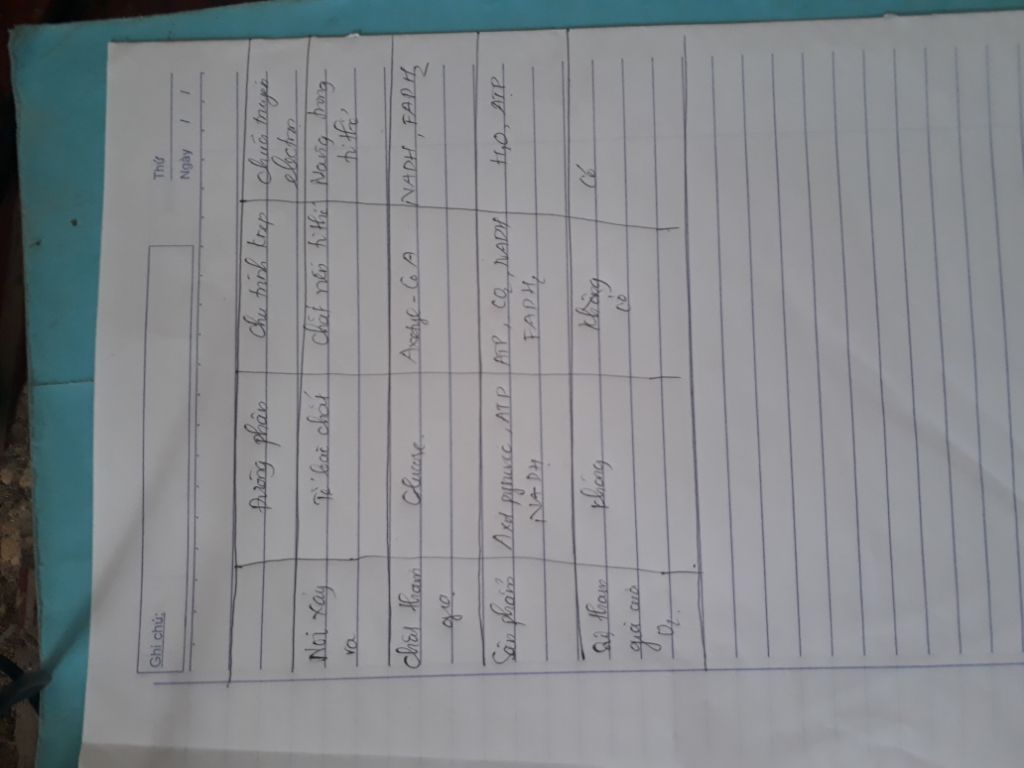 Ghi chú:
Thứ
Ngày / /
Đường phân
Chu trình crep
Chuỗi truyền
electron
Nơi xảy
ra
Tế bào chất
Chất nền ti thể
Màng trong
ti thể
Chất tham
gia
Glucose
Acetyl-CoA
NADH, FADH2
Sản phẩm
Axit pyruvic, ATP
NADH
ATP, CO2, NADH
FADH2
H2O, ATP
Sự tham
gia của
O2
không
không
có
Có